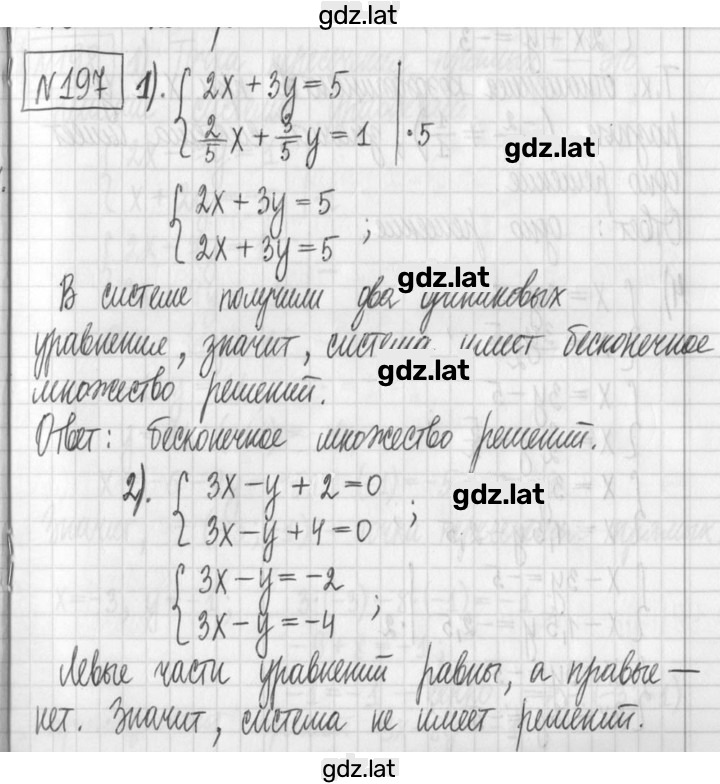 gdz.lat
№197 1). { 2x + 3y = 5
2/5 x + 3/5 y = 1 | ·5
gdz.lat
{ 2x + 3y = 5
2x + 3y = 5 ;
gdz.lat
В системе получили два одинаковых
уравнение, значит, система имеет бесконечное
gdz.lat
множество решений.
Ответ: бесконечное множество решений.
2). { 3x – y + 2 = 0
gdz.lat
3x – y + 4 = 0 ;
{ 3x – y = –2
3x – y = –4 ;
Левые части уравнений равны, а правые –
нет. Значит, система не имеет решений.
gdz.lat